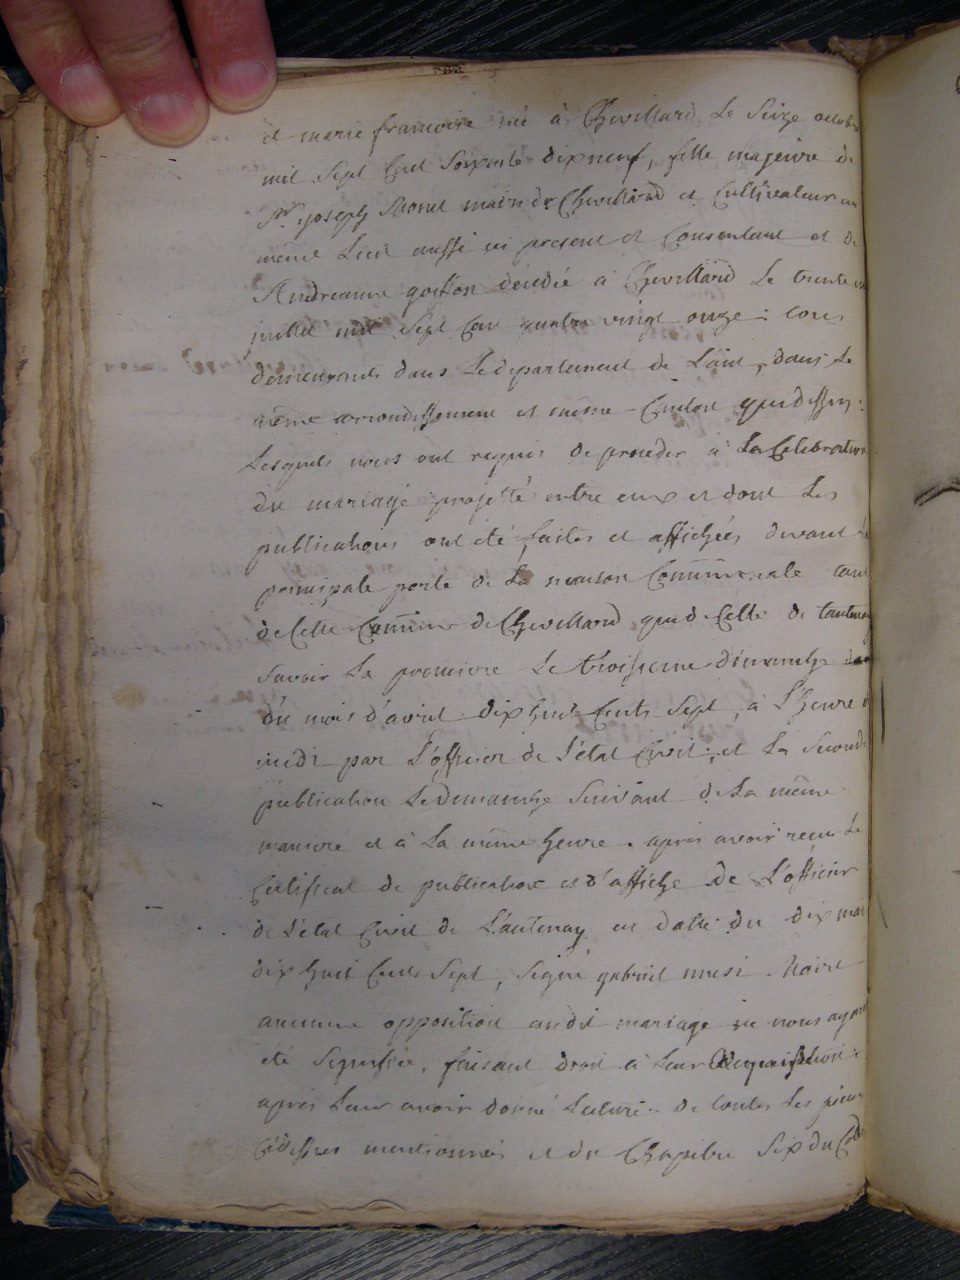 et marie francoise né à Chevillard Le Seize octobre
mil Sept Cent Soixante dixneuf, fille majeure de
Sr. joseph Monet maire de Chevillard et Cultivateur au
même Lieu aussi ici present et Consentant et de
Andreanne goiffon décédée à Chevillard Le trente un
juillet mil Sept Cent quatre vingt onze : tous
demeurants dans Le departement de L'ain, dans Le
même arrondissement et même Canton que dessus :
Lesquels nous ont requis de proceder à La Celebration
du mariage projetté entre eux et dont Les
publications ont été faites et affichées devant la
principale porte de La maison Commûnale tant
de Cette Commûne de Chevillard que de Celle de Lantenay
Savoir La premiere Le troisieme dimanche
du mois d'avril dix huit Cents Sept, a L'heure de
midi par L'officier de L'état Civil ; et La Seconde
publication Le dimanche Suivant de La même
maniere et à La même heure. après avoir reçu Le
Certificat de publication et d'affiche de L'officier
de L'état Civil de Lantenay en datte du dix mai
dix huit Cents Sept, Signé gabriel musi Maire
aucune opposition audit mariage ne nous ayant
été Signifiée, faisant droit à Leur Requisition :
après Leur avoir donné Lecture de toutes Les pieces
Cidessus mentionnées et du Chapitre Six du Code